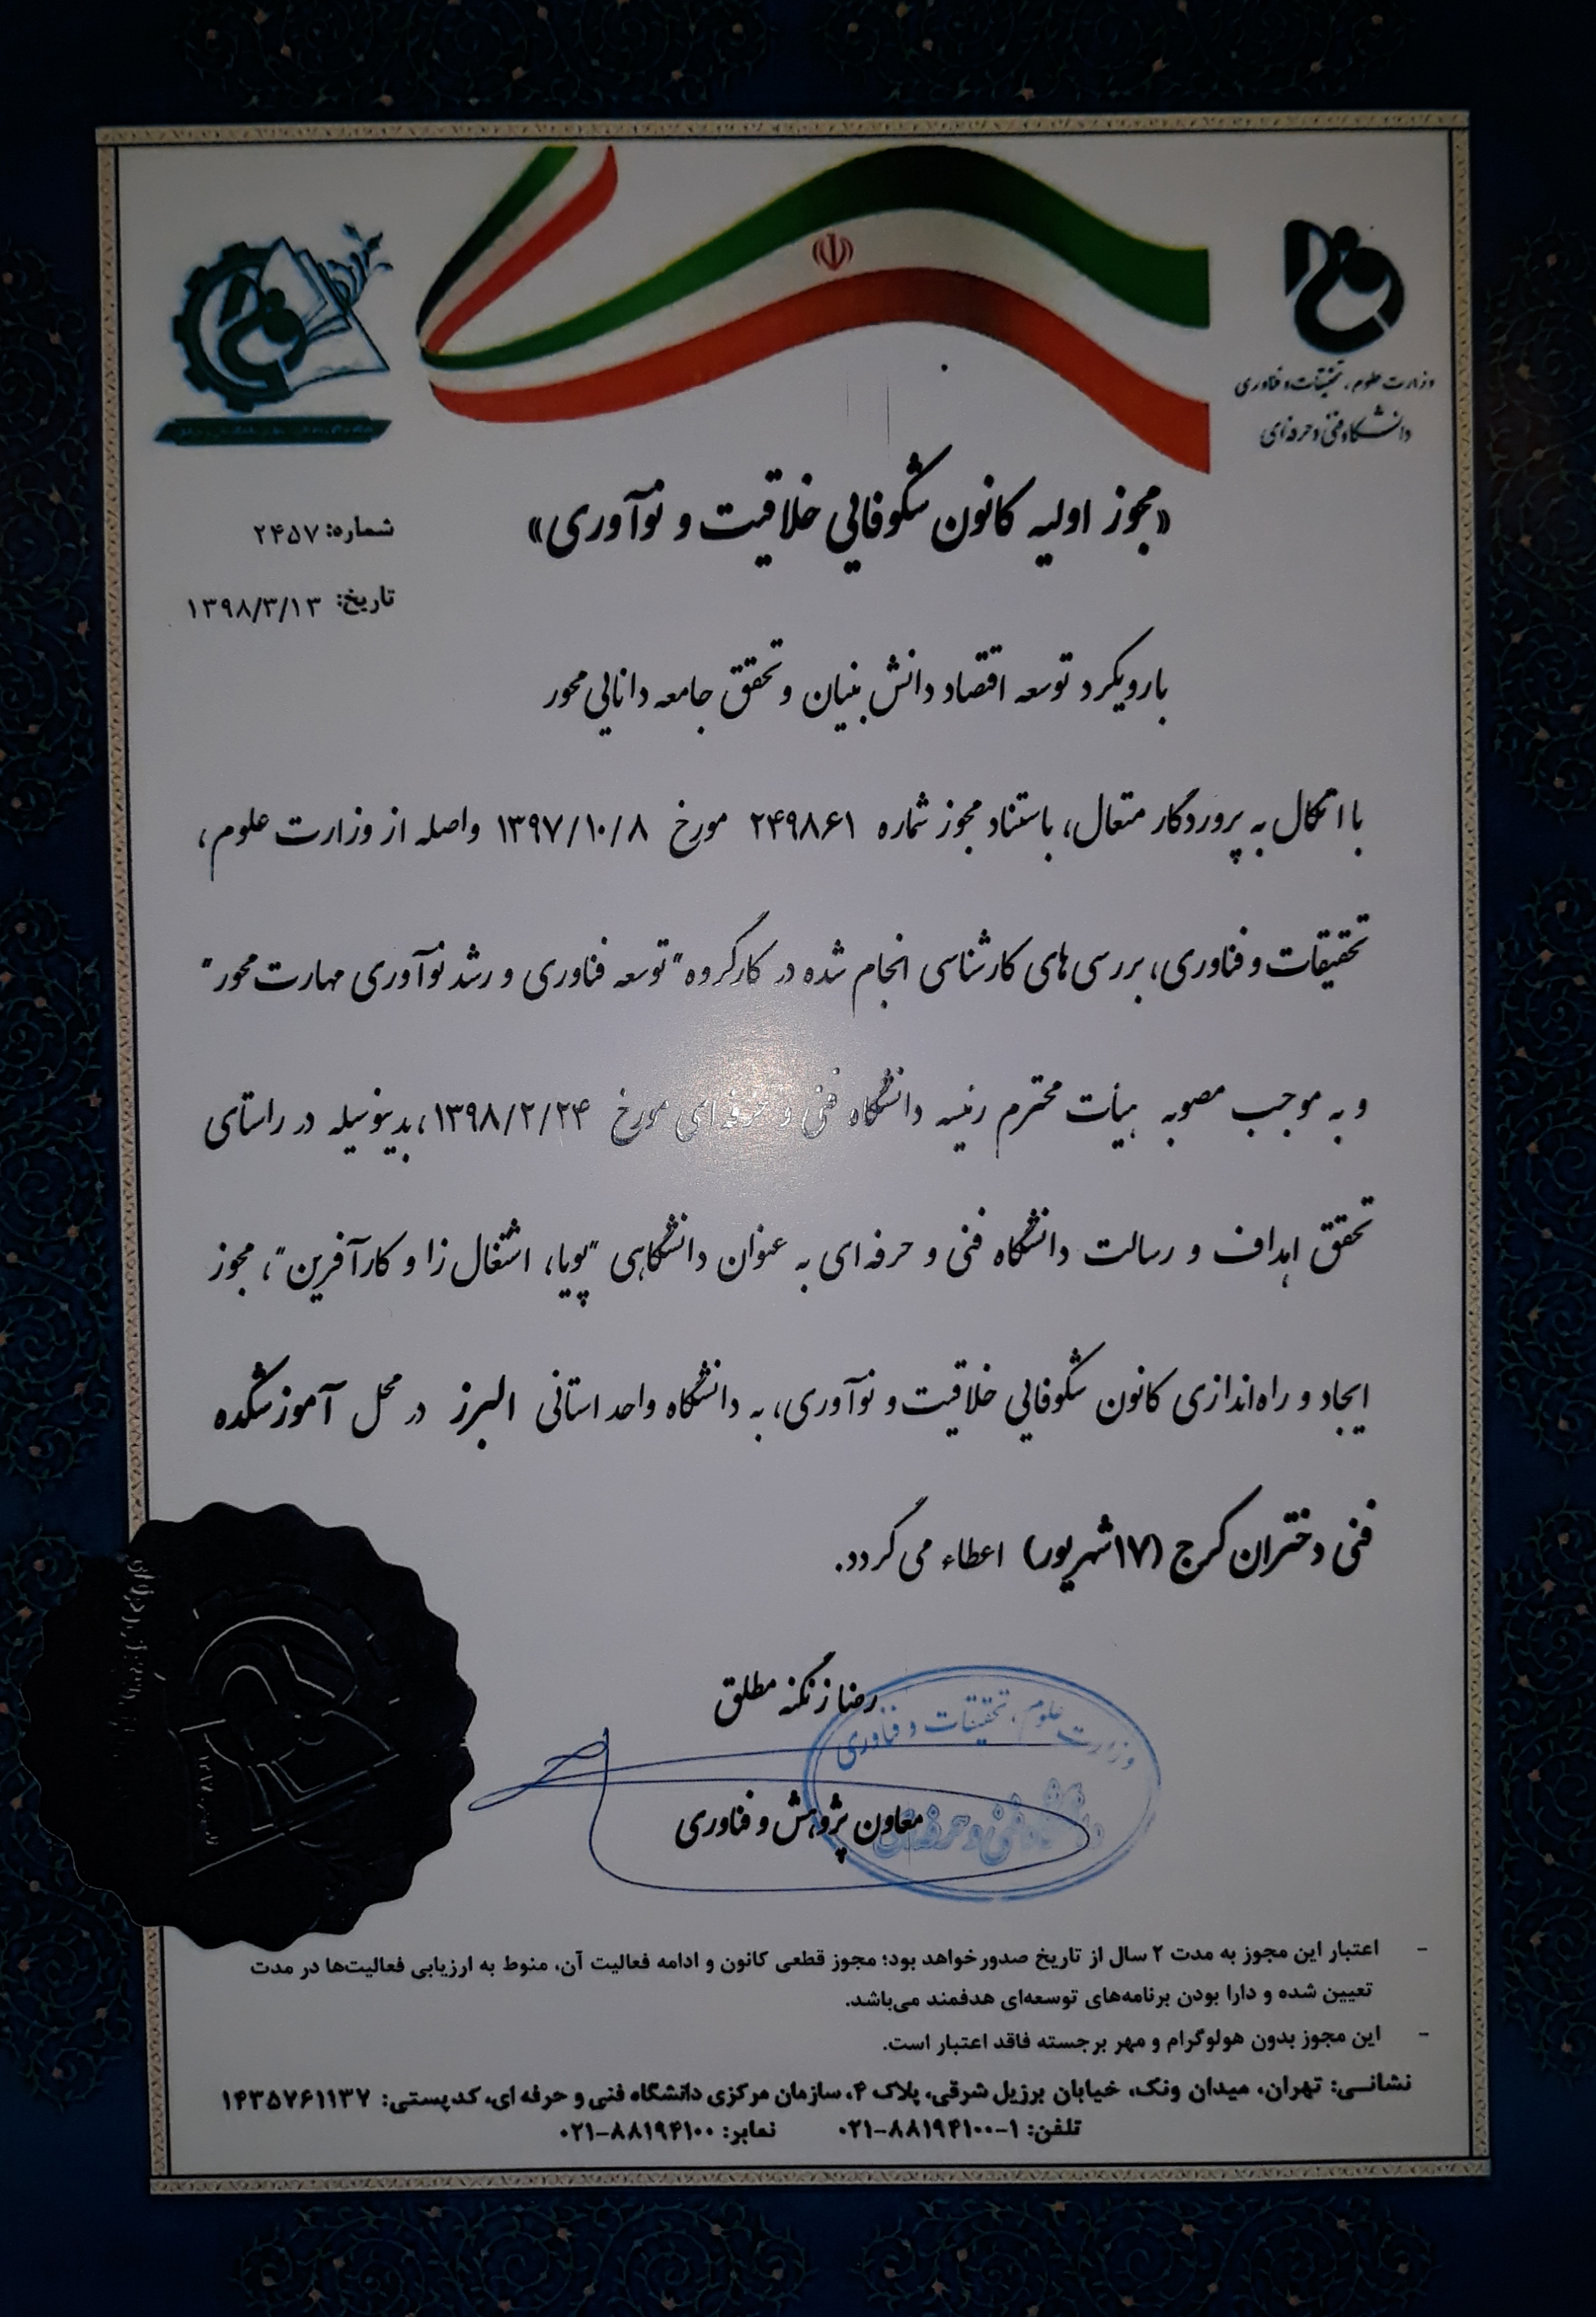 وزارت علوم، تحقیقات و فناوری
دانشگاه فنی و حرفه‌ای
«مجوز اولیه کانون شکوفایی خلاقیت و نوآوری»
شماره: ۲۴۵۷
تاریخ: ۱۳۹۸/۳/۱۳
با رویکرد توسعه اقتصاد دانش بنیان و تحقق جامعه دانایی محور
با اتکال به پروردگار متعال، باستناد مجوز شماره ۲۴۹۸۶۱ مورخ ۱۳۹۷/۱۰/۸ واصله از وزارت علوم،
تحقیقات و فناوری، بررسی‌های کارشناسی انجام شده در کارگروه "توسعه فناوری و رشد نوآوری مهارت محور"
و به موجب مصوبه هیأت محترم رئیسه دانشگاه فنی و حرفه‌ای مورخ ۱۳۹۸/۲/۲۴، بدینوسیله در راستای
تحقق اهداف و رسالت دانشگاه فنی و حرفه‌ای به عنوان دانشگاهی "پویا، اشتغال زا و کارآفرین"، مجوز
ایجاد و راه‌اندازی کانون شکوفایی خلاقیت و نوآوری، به دانشگاه واحد استانی البرز در محل آموزشکده
فنی دختران کرج (۱۷شهریور) اعطاء می گردد.
رضا زنگنه مطلق
وزارت علوم، تحقیقات و فناوری
دانشگاه فنی و حرفه‌ای
معاون پژوهش و فناوری
- اعتبار این مجوز به مدت ۲ سال از تاریخ صدور خواهد بود؛ مجوز قطعی کانون و ادامه فعالیت آن، منوط به ارزیابی فعالیت‌ها در مدت
تعیین شده و دارا بودن برنامه‌های توسعه‌ای هدفمند می‌باشد.
- این مجوز بدون هولوگرام و مهر برجسته فاقد اعتبار است.
نشانی: تهران، میدان ونک، خیابان برزیل شرقی، پلاک ۴، سازمان مرکزی دانشگاه فنی و حرفه ای، کد پستی: ۱۴۳۵۷۶۱۱۳۷
تلفن: ۱-۸۸۱۹۴۱۰۰-۰۲۱ نمابر: ۸۸۱۹۴۱۰۰-۰۲۱